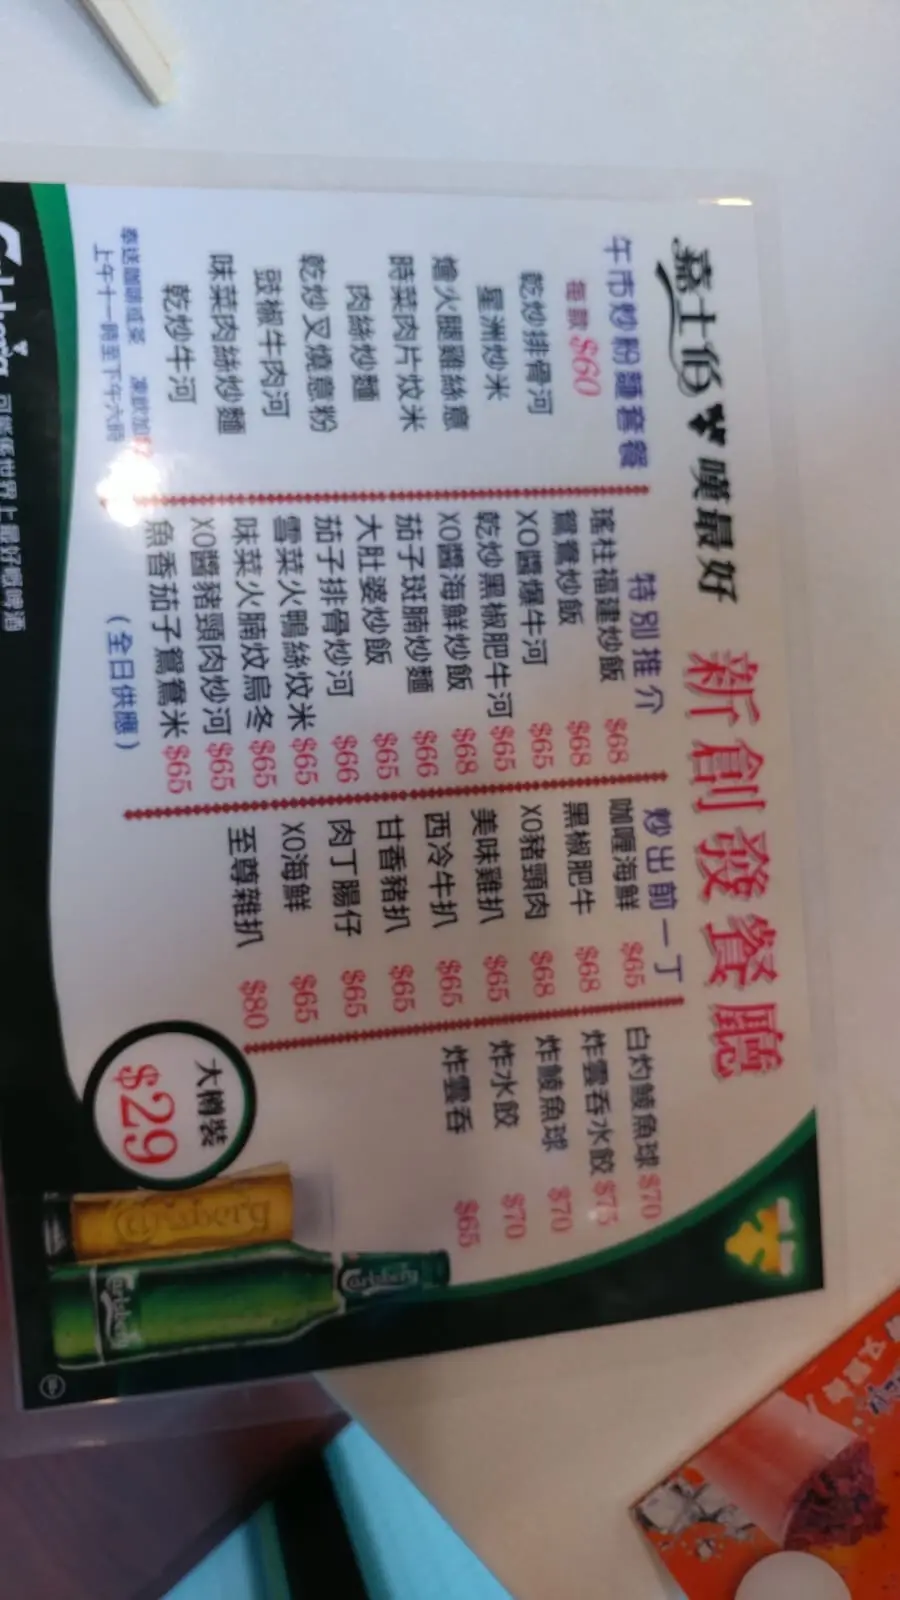 嘉士伯 嘆最好
新創發餐廳
午市炒粉麵套餐
每款$60
乾炒排骨河
星洲炒米
燴火腿雞絲意
時菜肉片炆米
肉絲炒麵
乾炒叉燒意粉
豉椒牛肉河
味菜肉絲炒麵
乾炒牛河
奉送咖啡或茶 凍飲加
上午十一時至下午六時
特別推介
瑤柱福建炒飯 $68
鴛鴦炒飯 $68
XO醬爆牛河 $65
乾炒黑椒肥牛河 $65
XO醬海鮮炒飯 $68
茄子斑腩炒麵 $66
大肚婆炒飯 $65
茄子排骨炒河 $66
雪菜火鴨絲炆米 $65
味菜火腩炆烏冬 $65
XO醬豬頸肉炒河 $65
魚香茄子鴛鴦米 $65
(全日供應)
炒出前一丁
咖喱海鮮 $65
黑椒肥牛 $68
XO豬頸肉 $68
美味雞扒 $65
西冷牛扒 $65
甘香豬扒 $65
肉丁腸仔 $65
XO海鮮 $65
至尊雜扒 $80
白灼鯪魚球 $70
炸雲吞水餃 $75
炸鯪魚球 $70
炸水餃 $70
炸雲吞 $65
大樽裝
$29
Carlsberg 可能係世界上最好嘅啤酒
Carlsberg
Carlsberg